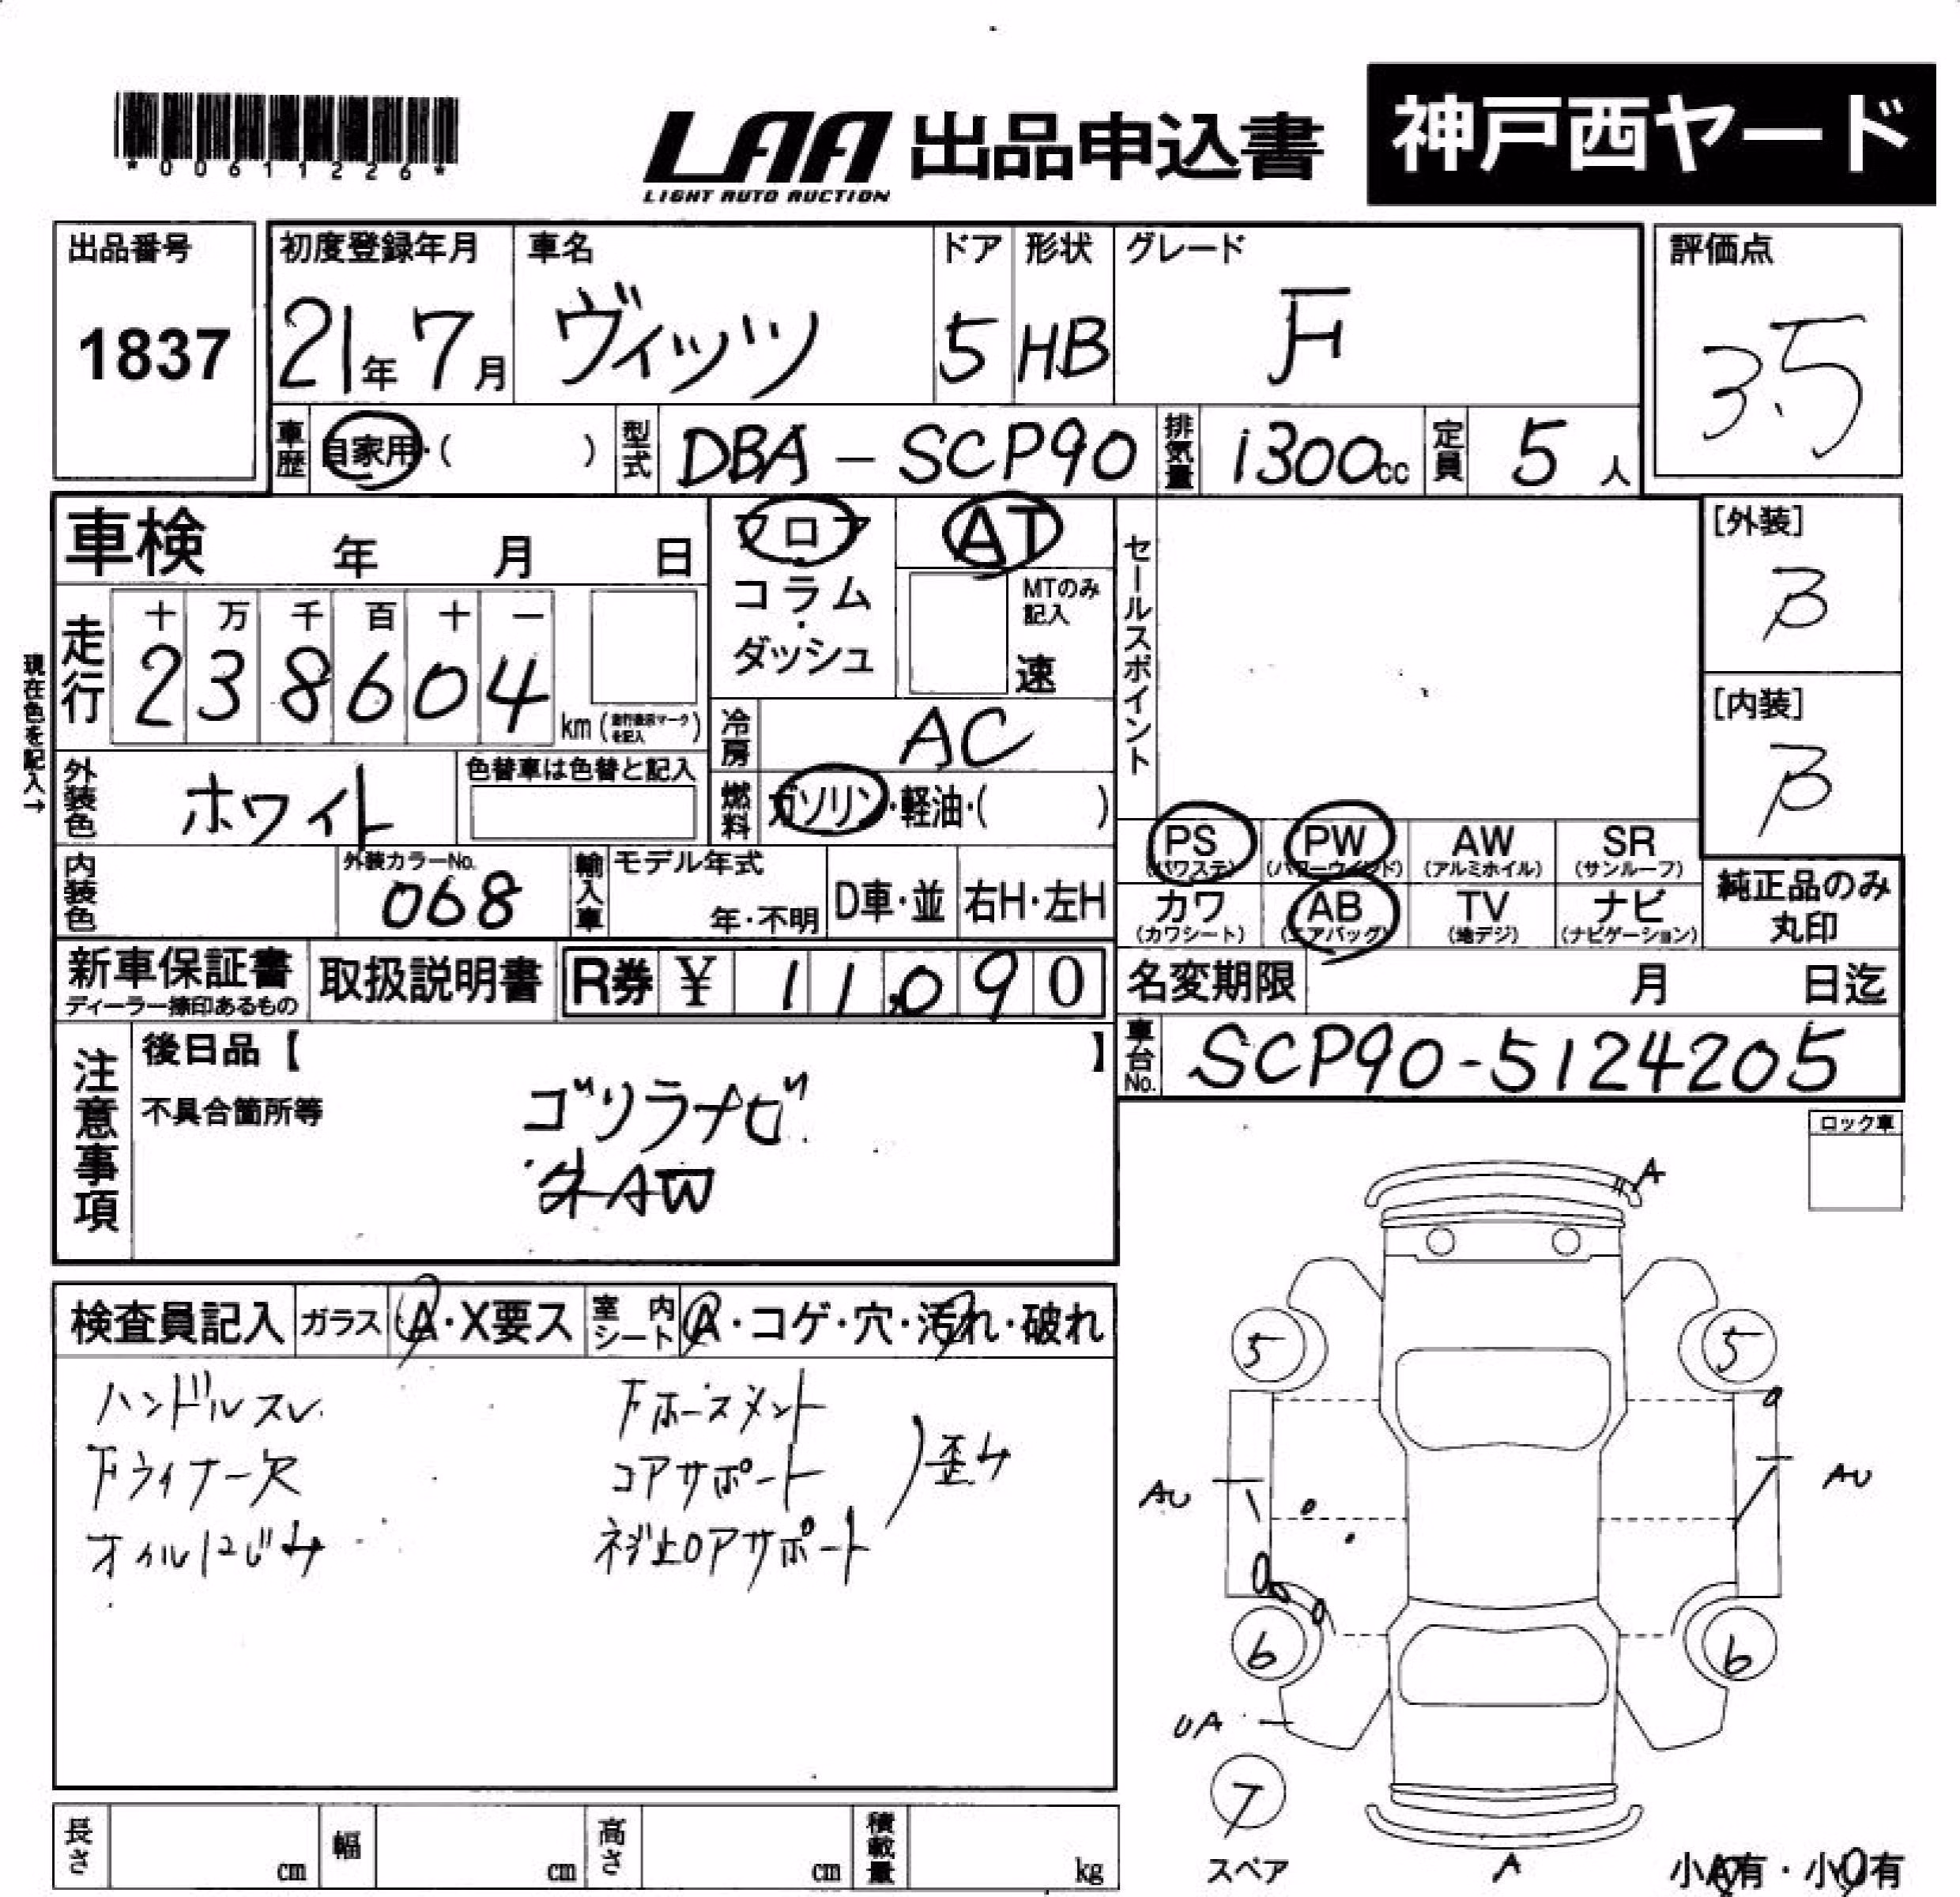 *00611226*
LAA 出品申込書 神戸西ヤード
LIGHT AUTO AUCTION
出品番号 初度登録年月 車名 ドア 形状 グレード 評価点
1837 21年 7月 ヴィッツ 5 HB F 3.5
車歴 自家用・( ) 型式 DBA-SCP90 排気量 1300cc 定員 5人
車検 年 月 日 フロア・コラム・ダッシュ AT
MTのみ記入 速
セールスポイント
[外装] B
[内装] B
走行 十 万 千 百 十 一
238604 km (走行表示マークを記入)
現在色を記入→
冷房 AC
外装色 ホワイト 色替車は色替と記入
燃料 ガソリン・軽油・( )
PS (パワステ) PW (パワーウインド) AW (アルミホイル) SR (サンルーフ)
カワ (カワシート) AB (エアバッグ) TV (地デジ) ナビ (ナビゲーション)
純正品のみ丸印
内装色 外装カラーNo. 068 輸入車 モデル年式 年・不明 D車・並 右H・左H
新車保証書 ディーラー捺印あるもの 取扱説明書 R券 ¥ 11,090
名変期限 月 日迄
車台No. SCP90-5124205
注意事項 後日品【 】
不具合箇所等
ゴリラナビ
社外AW
ロック車
検査員記入 ガラス A・X要ス 室内シート A・コゲ・穴・汚れ・破れ
ハンドルスレ Fホースメント
Fライナー欠 コアサポート 歪み
オイルにじみ ネジ止ロアサポート
A
5 5
AU AU
6 6
UA
7
スペア
A
小A有・小U有
長さ cm 幅 cm 高さ cm 積載量 kg